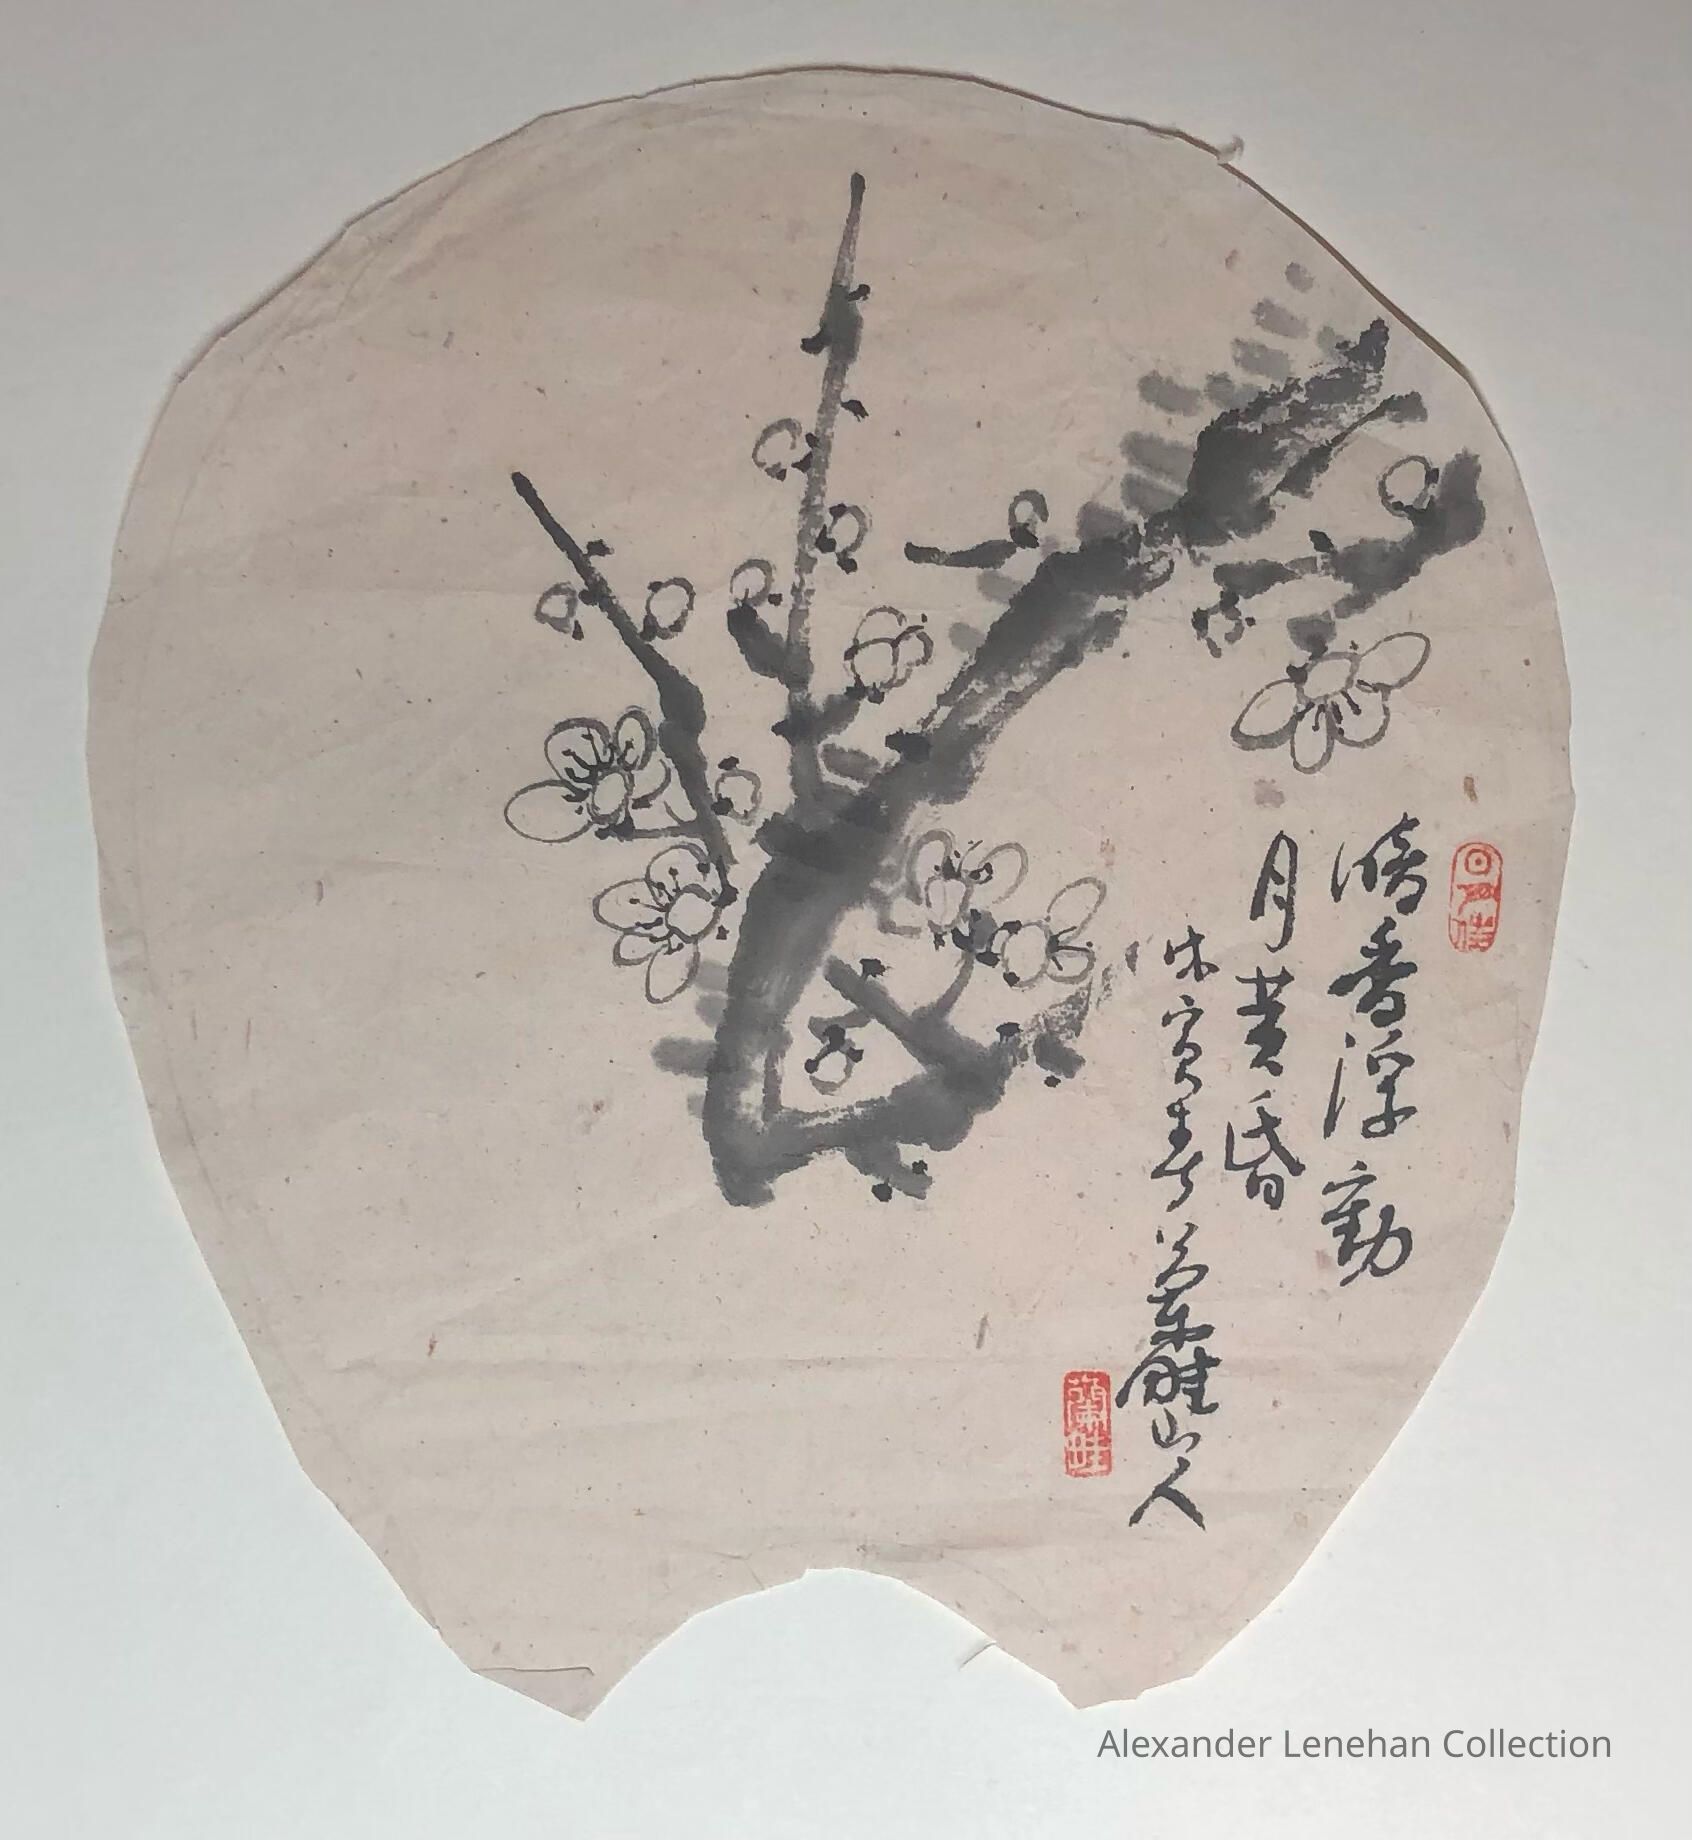 暗香浮動
月黄昏
戊寅春 蘭畦山人
蘭畦
Alexander Lenehan Collection